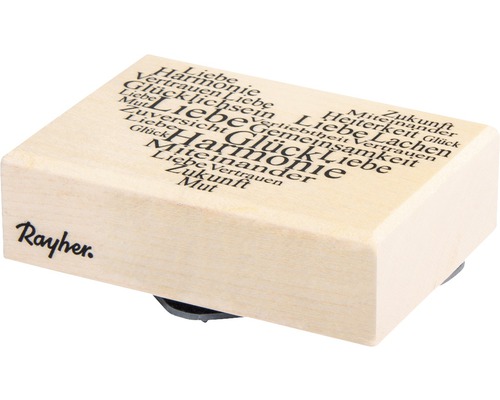 Liebe
Harmonie
Vertrauen Liebe
Glücklichsein
Mut Liebe Verliebtheit Vertrauen Glück
Zukunft
Miteinander
Heiterkeit
Liebe Lachen
Zuversicht Glück Gemeinsamkeit
Glück Harmonie Liebe
Miteinander
Liebe Vertrauen
Zukunft
Mut
Rayher.